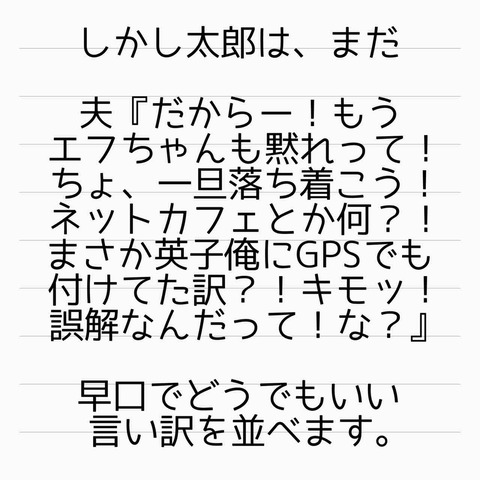 しかし太郎は、まだ
夫『だからー！もう
エフちゃんも黙れって！
ちょ、一旦落ち着こう！
ネットカフェとか何？！
まさか英子俺にGPSでも
付けてた訳？！キモッ！
誤解なんだって！な？』
早口でどうでもいい
言い訳を並べます。